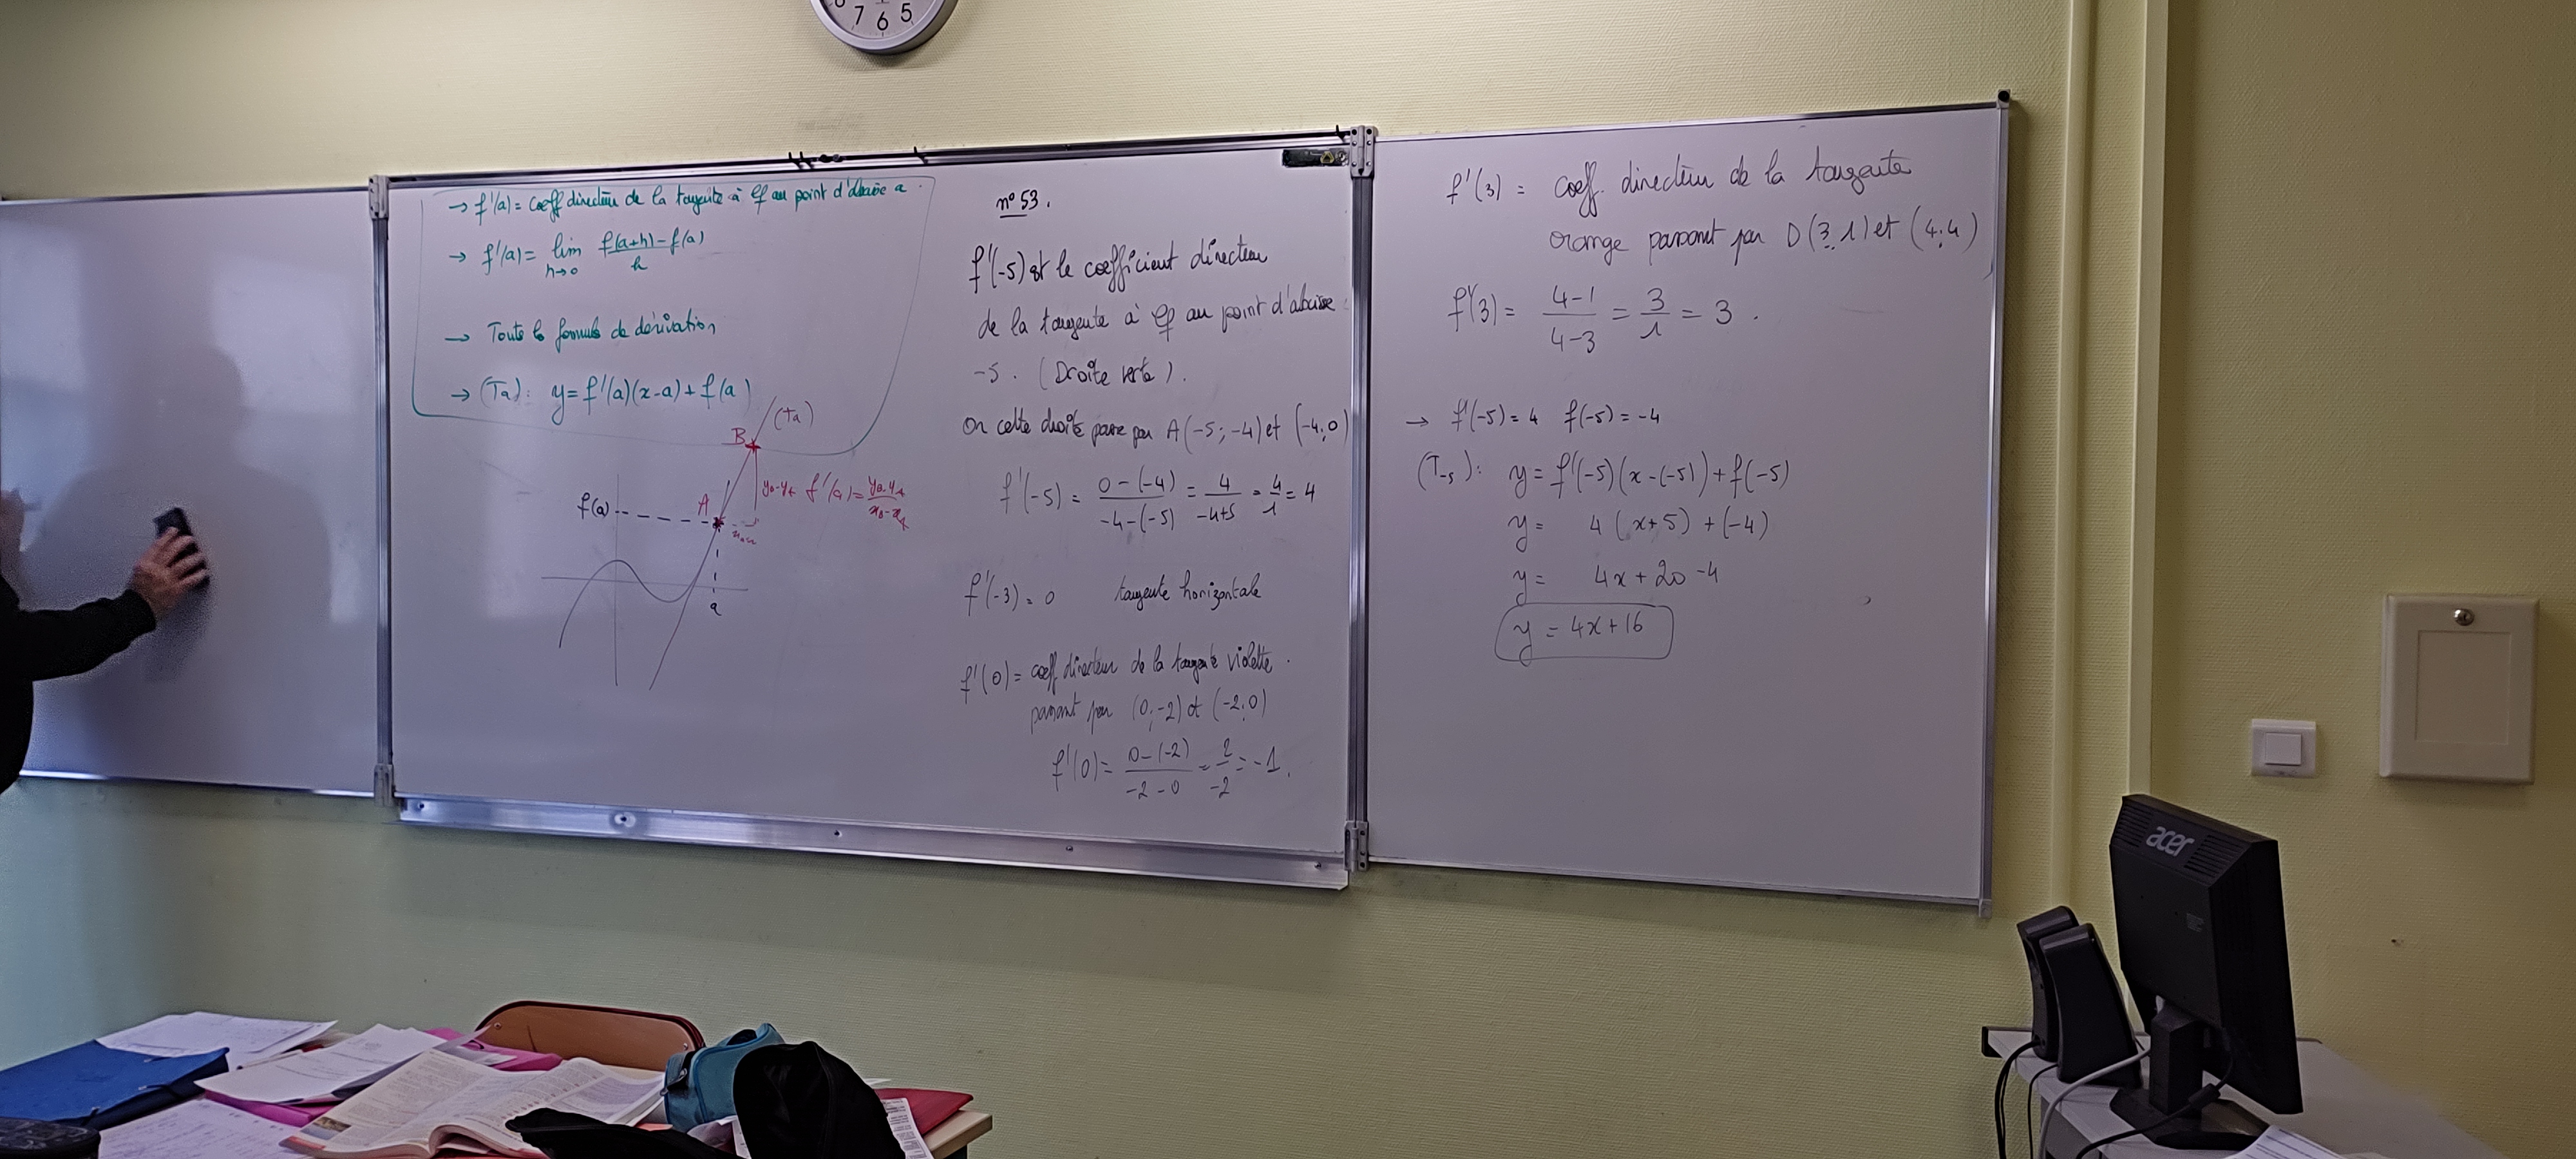 7 6 5
→ f'(a) = coeff directeur de la tangente à Cf au point d'abscisse a.
→ f'(a) = lim h→0 f(a+h) - f(a) / h
→ Toute les formules de dérivation
→ (Ta) : y = f'(a)(x-a) + f(a)
(Ta)
B
A
yB-yA f'(a) = yB-yA / xB-xA
f(a)
a
n° 53.
f'(-5) est le coefficient directeur
de la tangente à Cf au point d'abscisse
-5. (Droite verte).
Or cette droite passe par A(-5; -4) et (-4; 0)
f'(-5) = 0-(-4) / -4-(-5) = 4 / -4+5 = 4/1 = 4
f'(-3) = 0 tangente horizontale
f'(0) = coeff directeur de la tangente violette.
passant par (0; -2) et (-2; 0)
f'(0) = 0-(-2) / -2-0 = 2/-2 = -1.
f'(3) = coeff. directeur de la tangente
orange passant par D(3; 1) et (4; 4)
f'(3) = 4-1 / 4-3 = 3/1 = 3.
→ f'(-5) = 4 f(-5) = -4
(T-5) : y = f'(-5)(x-(-5)) + f(-5)
y = 4(x+5) + (-4)
y = 4x + 20 - 4
y = 4x + 16
acer